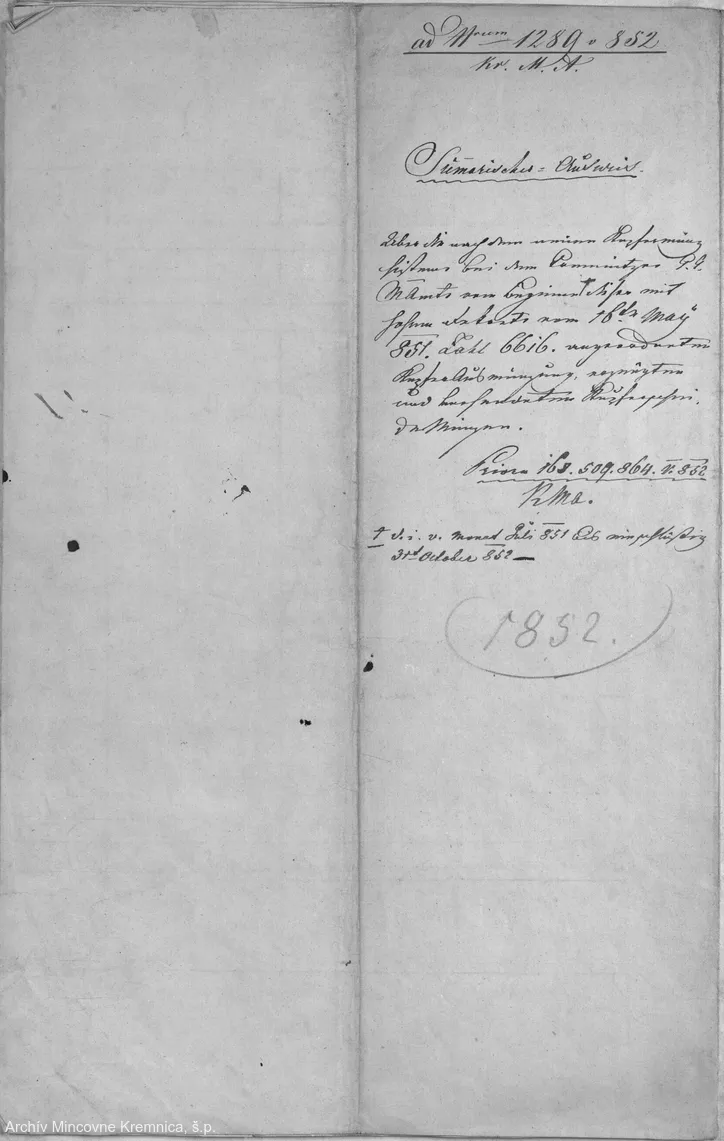 ad Nrum 1289 v 852
Kr. M. A.
Summarischer=Ausweis.
Ueber die nach dem neuen Kupfermünz
sisteme bei dem Cremnitzer
MAmts vom Beginne † dieser mit
hohem Dekrete vom 16ten May
851. Zahl 6616. angeordneten
Kupfer Ausmünzung, erzeugten
und Kupferschei,
deMünzen.
Priora 168. 509. 864. v. 852
KMA.
† d. i. v. Monat Juli 851 bis einschlüßig
31t October 852—
1852.
Archív Mincovne Kremnica, š.p.